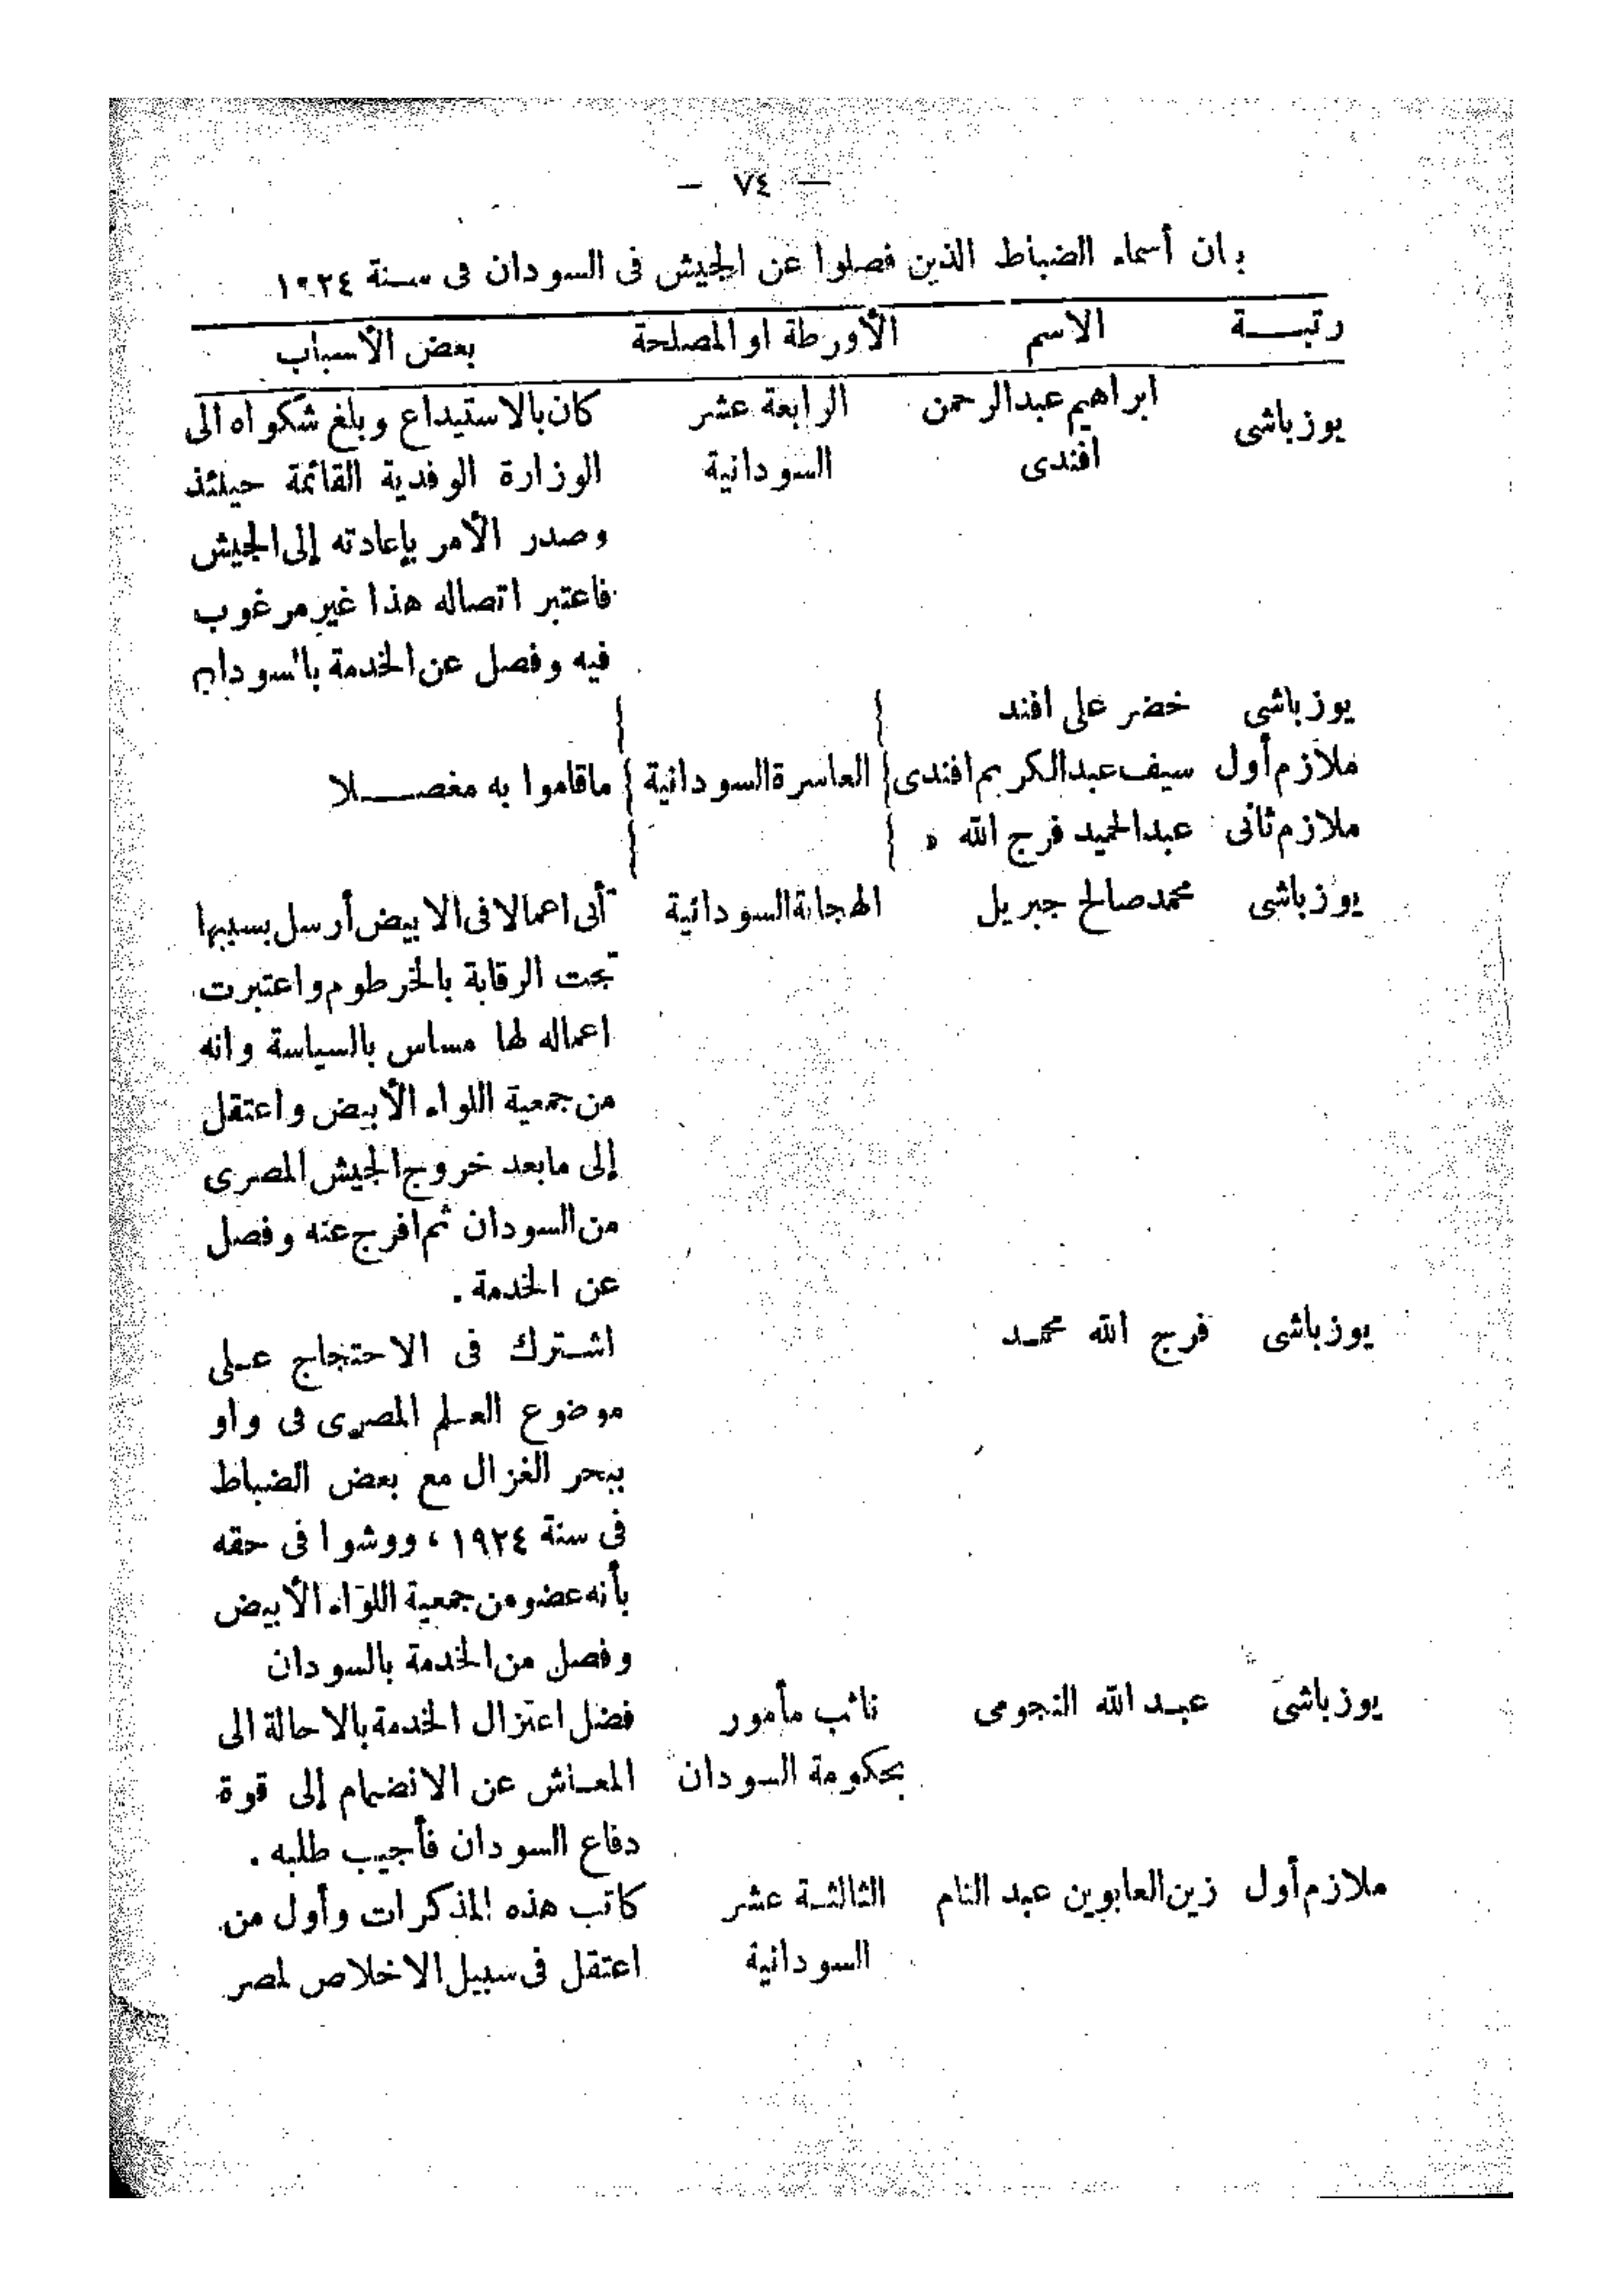 — ٧٤ —
بيان أسماء الضباط الذين فصلوا عن الجيش فى السودان فى سنة ١٩٢٤
رتبــة الاسم الأورطة او المصلحة بعض الأسباب
يوزباشى ابراهيم عبدالرحمن الرابعة عشر كان بالاستيداع وبلغ شكواه الى
افندى السودانية الوزارة الوفدية القائمة حينئذ
وصدر الأمر بإعادته إلى الجيش
فاعتبر اتصاله هذا غير مرغوب
فيه وفصل عن الخدمة بالسودان
يوزباشى خضر على افند
ملازم أول سيف عبدالكريم افندى العاشرة السودانية ماقاموا به مفصــلا
ملازم ثانى عبدالحميد فرج الله »
يوزباشى محمد صالح جبريل الهجانة السودانية أتى اعمالا فى الابيض أرسل بسببها
تحت الرقابة بالخرطوم واعتبرت
اعماله لها مساس بالسياسة وانه
من جمعية اللواء الأبيض واعتقل
إلى مابعد خروج الجيش المصرى
من السودان ثم افرج عنه وفصل
عن الخدمة .
يوزباشى فرج الله محمد اشترك فى الاحتجاج على
موضوع العلم المصرى فى واو
ببحر الغزال مع بعض الضباط
فى سنة ١٩٢٤ ، ووشوا فى حقه
بأنه عضو من جمعية اللواء الأبيض
وفصل من الخدمة بالسودان
يوزباشى عبد الله النجومى نائب مأمور فضل اعتزال الخدمة بالاحالة الى
بحكومة السودان المعاش عن الانضمام إلى قوة
دفاع السودان فأجيب طلبه .
ملازم أول زين العابوين عبد التام الثالثة عشر كاتب هذه المذكرات وأول من
السودانية اعتقل فى سبيل الاخلاص لمصر